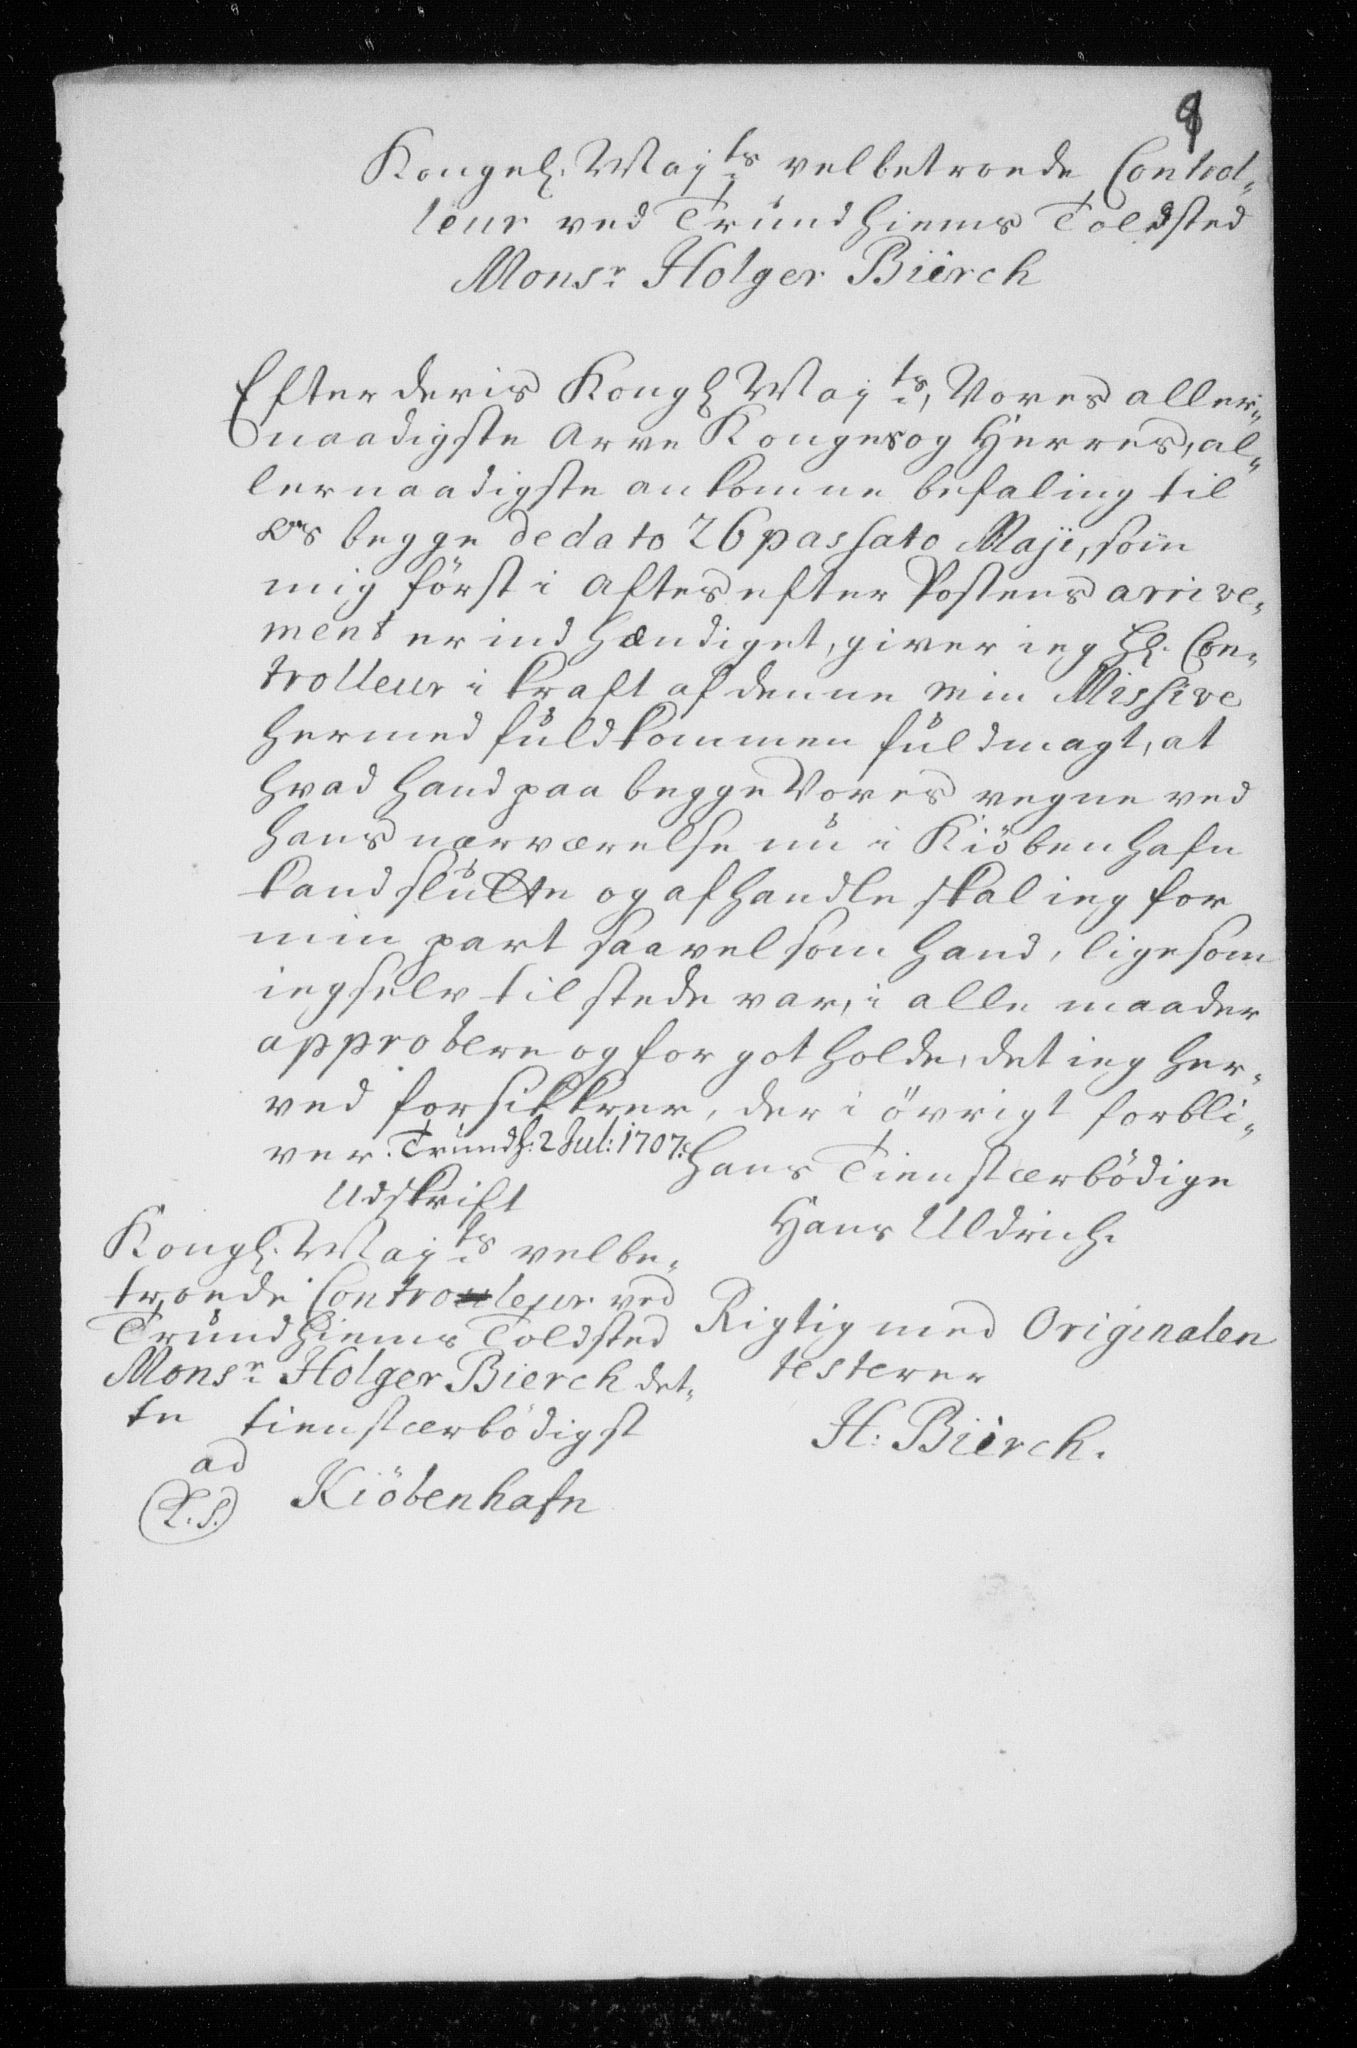 8
Kongel. Mayts velbetroede Control-
leur ved Trundhiems Toldsted
Monsr Holger Bierch
Efter deris Kongl Mayts, Vores aller-
naadigste Arve Konges og Herres, al-
lernaadigste ankomne befaling til
os begge de dato 26 passato Maji, som
mig först i Aftes efter Postens arrive-
ment er ind hændiget, giver ieg Hr. Con-
trolleur i kraft af denne min Missive
hermed fuldkommen fuldmagt, at
hvad hand paa begge Vores vegne ved
hans nærværelse nu i Kiöbenhafn
kand slutte og afhandle skal ieg for
min part saavel som hand, lige som
ieg self til stede var, i alle maader
approbere og for got holde, det ieg her-
ved forsikkrer, der i övrigt forbli-
ver. Trundh: 2 Jul: 1707.
Hans Tienstærbödige
Hans Uldrich.
Udskrift
Kongl. Mayts velbe-
troede Controleur ved
Trundhiems Toldsted
Monsr Holger Bierch det-
te tienstærbödigst
ad
(L.S.) Kiöbenhafn
Rigtig med Originalen
testerer
H: Bierch.